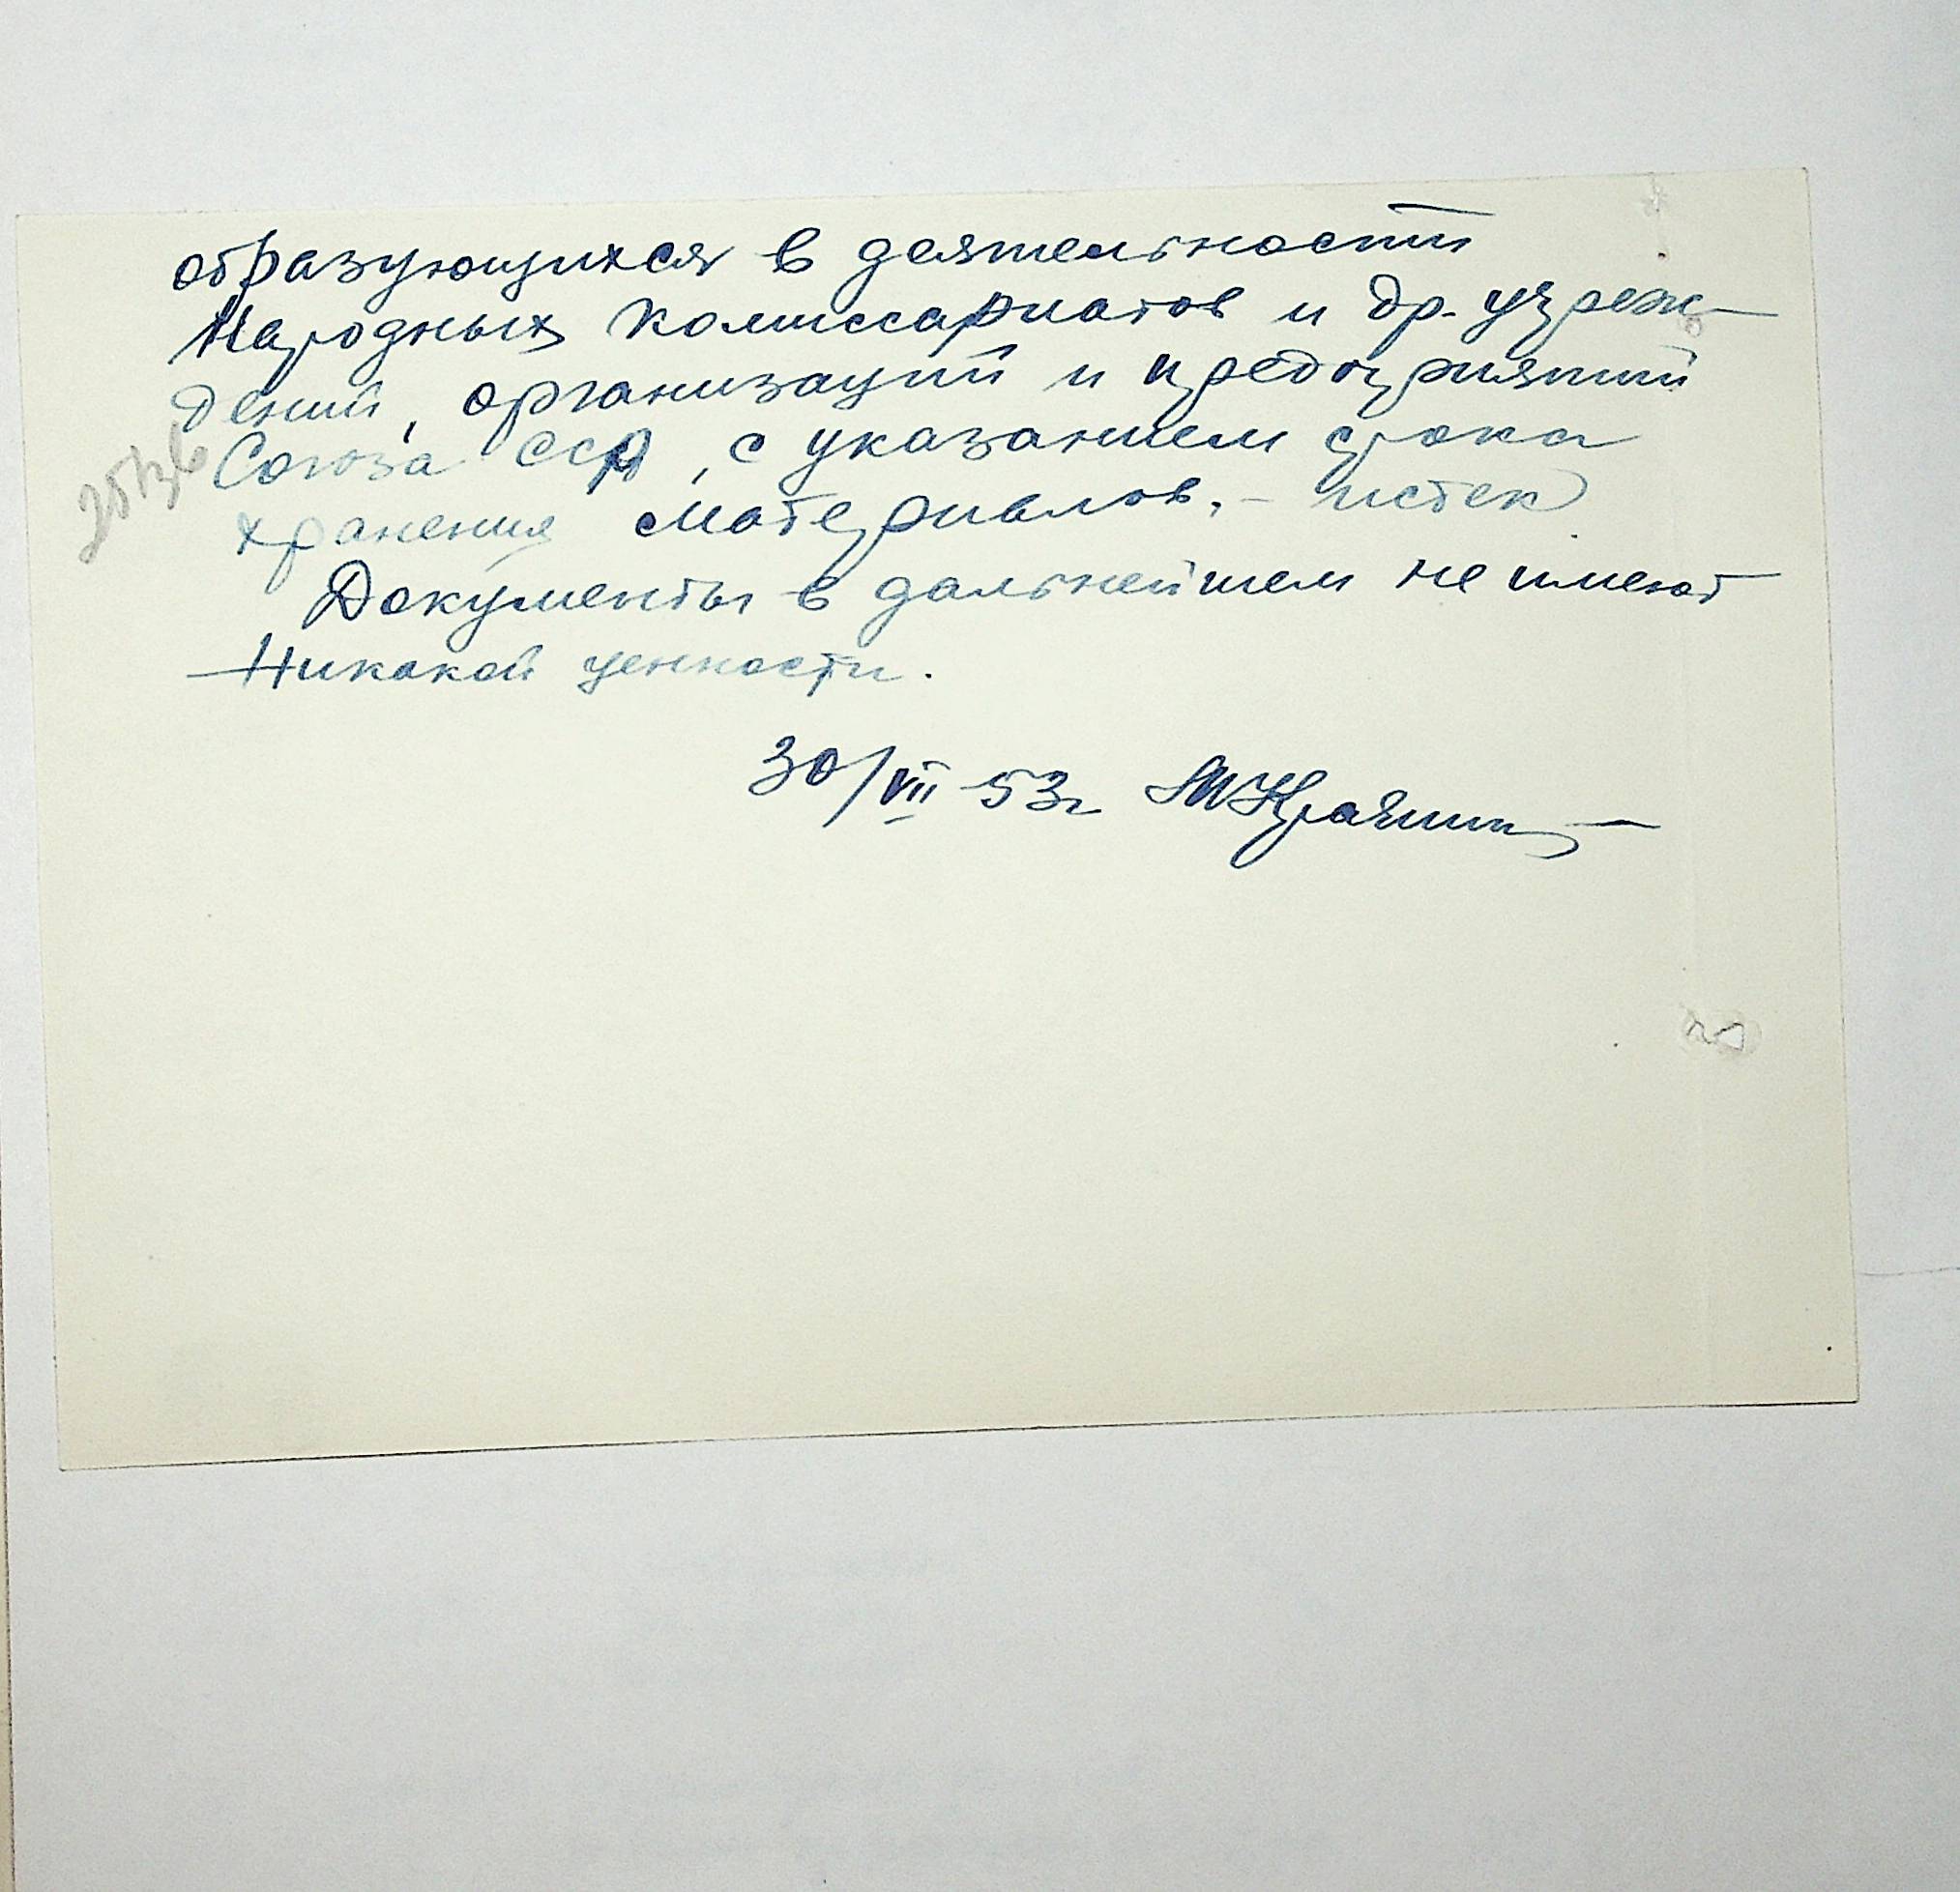 образующихся в деятельности
Народных комиссариатов и др. учреж-
дений, организаций и предприятий
Союза ССР, с указанием срока
хранения материалов, - истек
Документы в дальнейшем не имеют
никакой ценности.
30/VII 53г